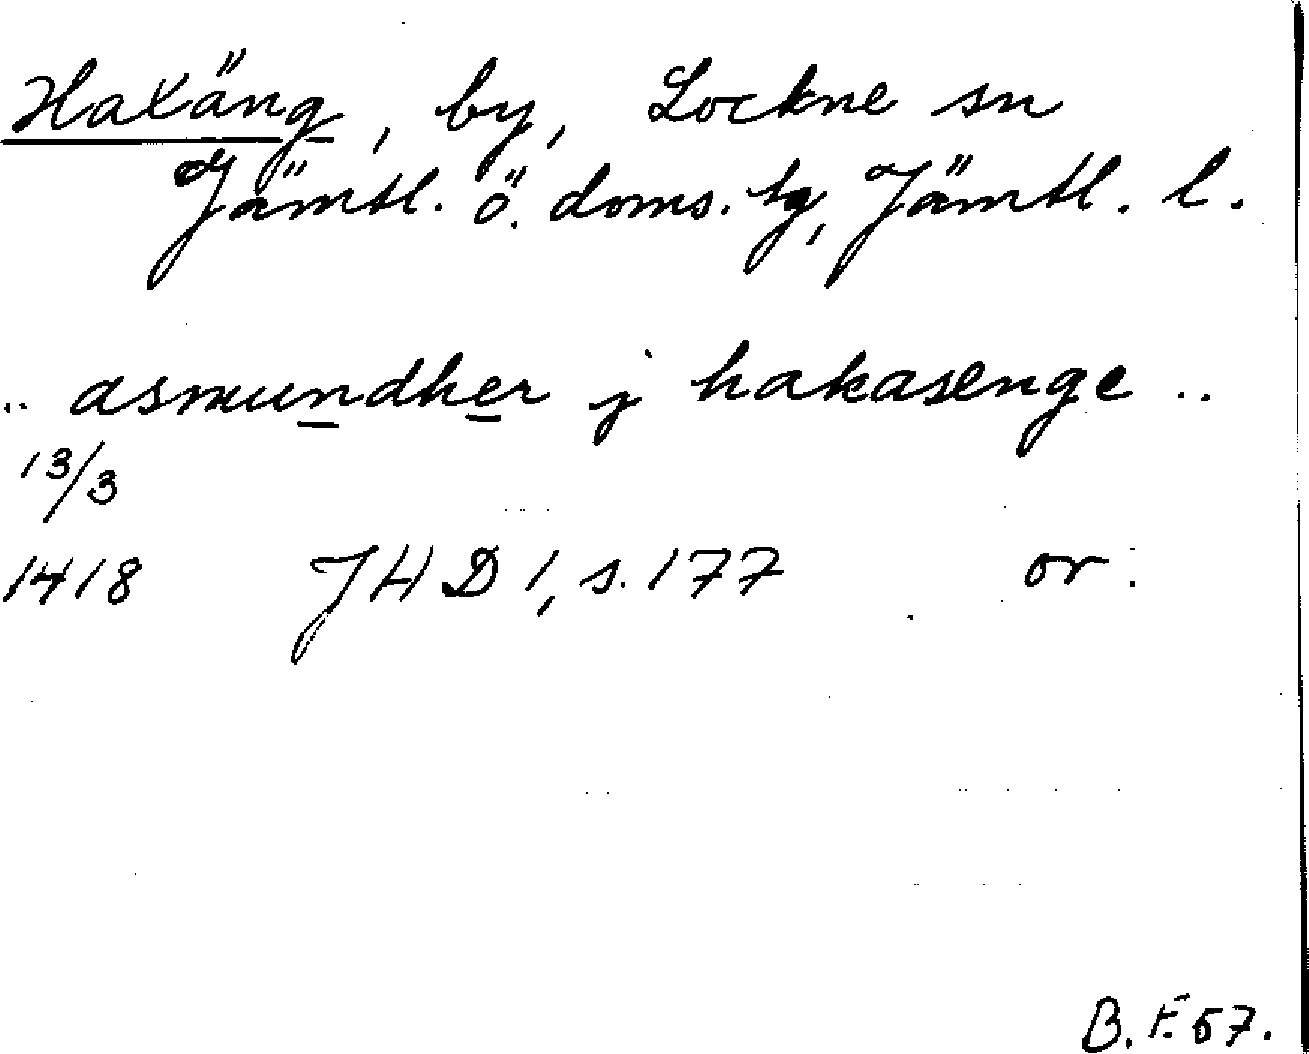 Haxäng, by, Lockne sn
Jämtl. ö. doms. tg, Jämtl. l.
.. asmundher j hakasenge ..
13/3
1418 JHD 1, s. 177 or.
B. F. 57.